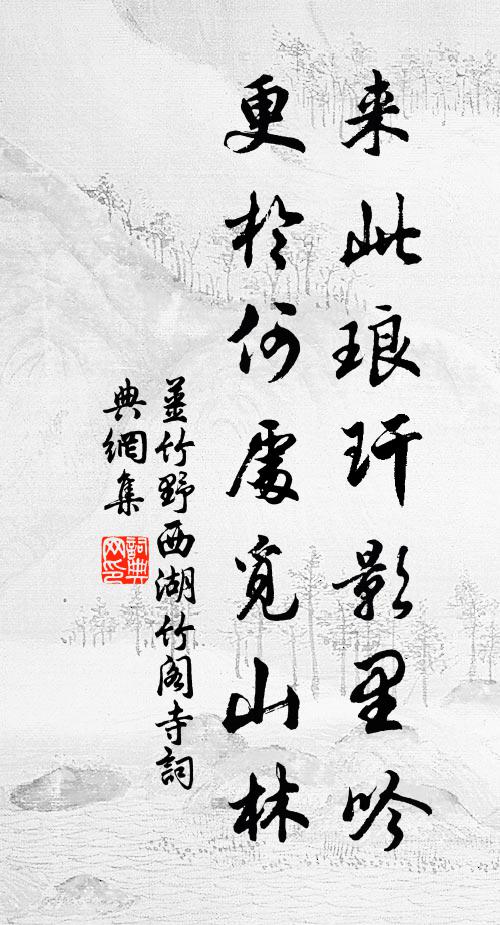 来此琅玕影里吟
更於何處覓山林
薑竹野西湖竹阁寺詞
典網集
詞典
网印